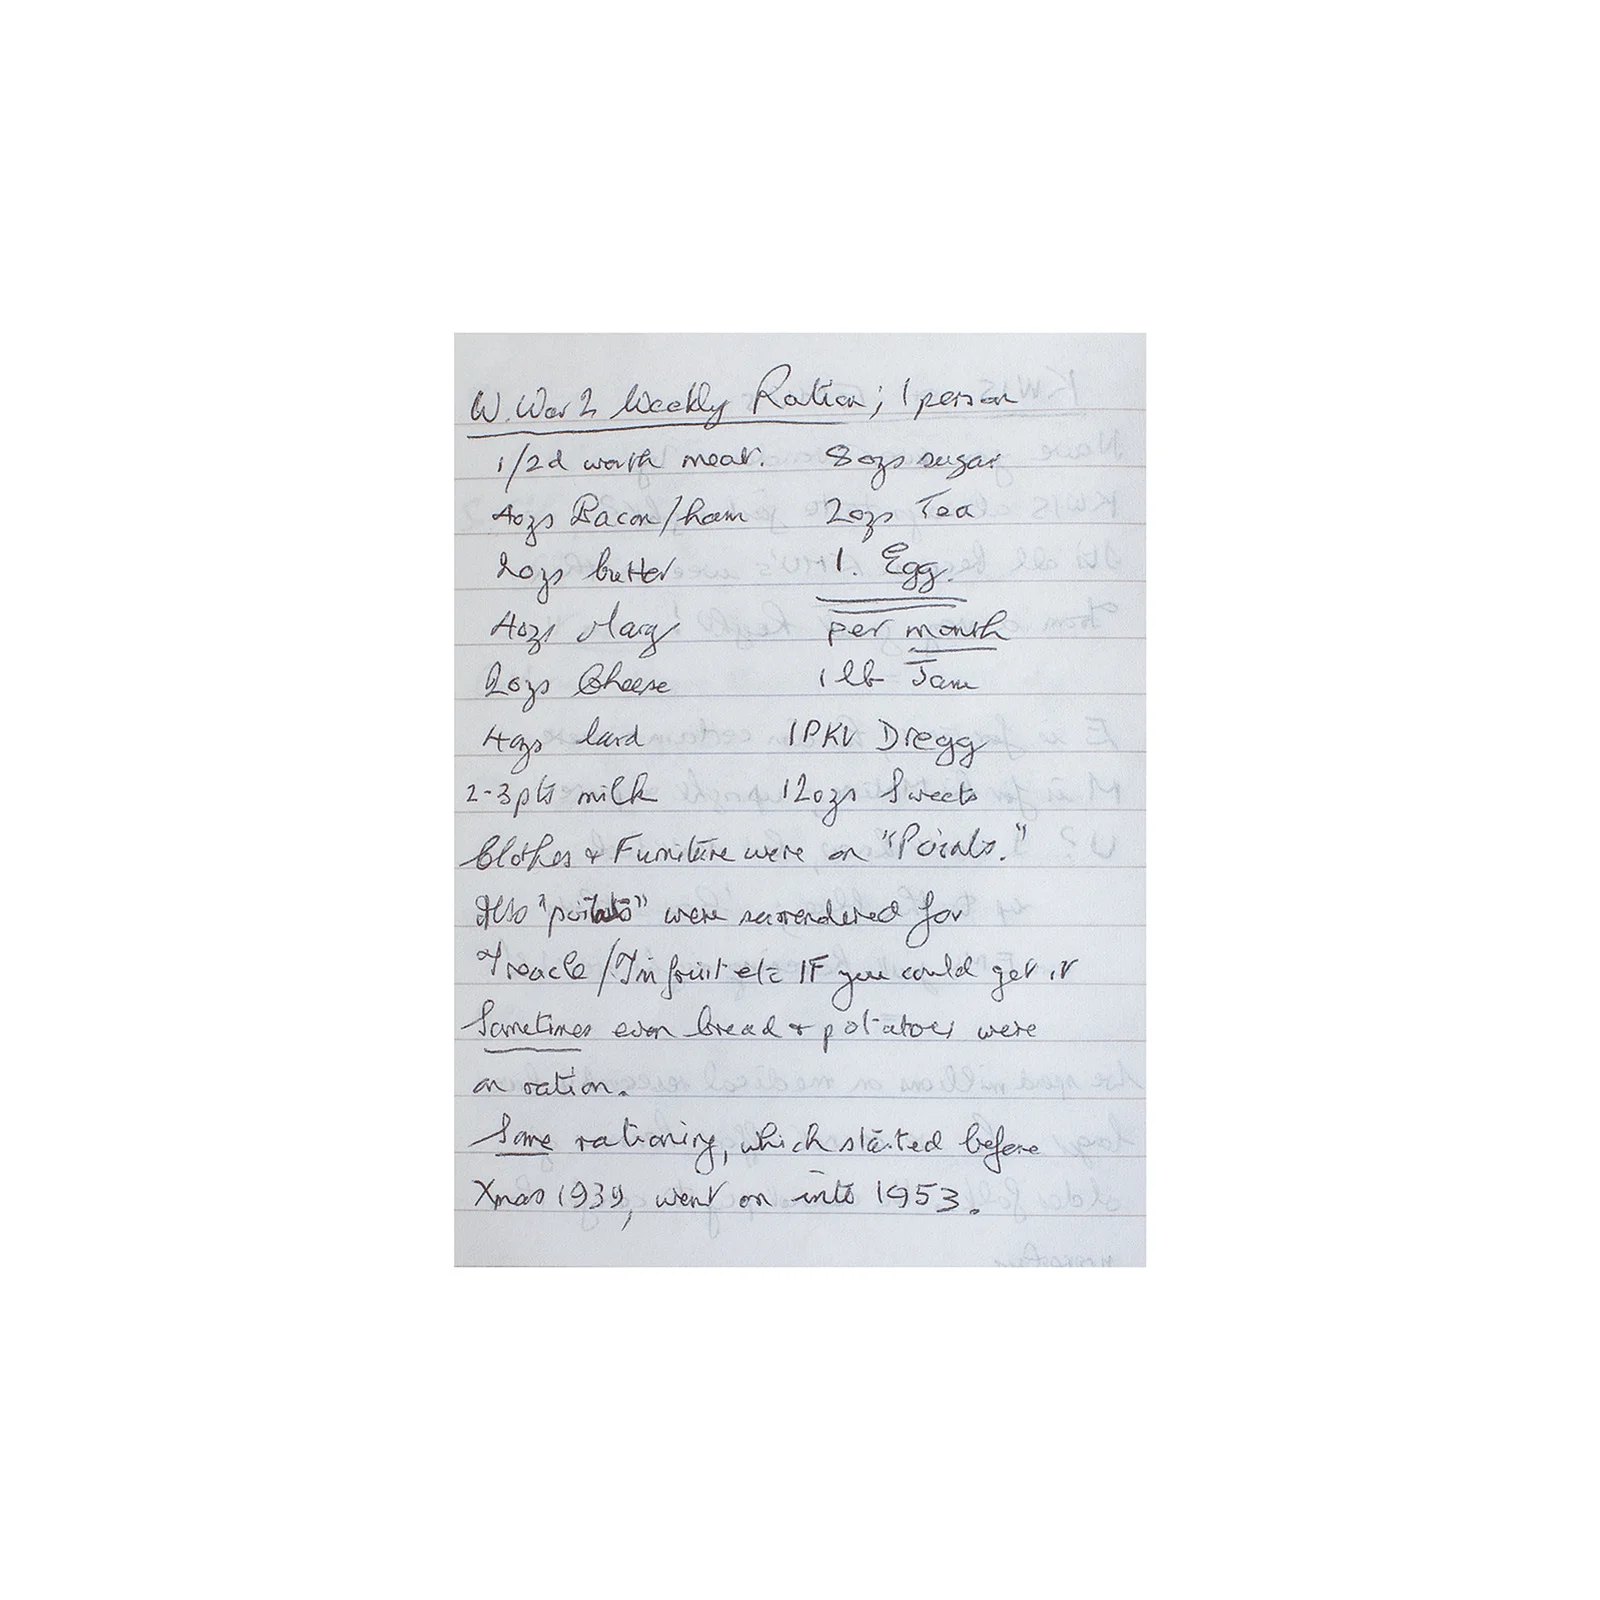 W. War 2 Weekly Ration; 1 person
1/2d worth meat. 8ozs sugar
4ozs Bacon/ham 2ozs Tea
2ozs butter 1. Egg.
4ozs Marg per month
2ozs Cheese 1 lb Jam
4ozs lard 1PKT Dregg
2-3pts milk 12ozs Sweets
Clothes + Furniture were on "Points."
Also "points" were surrendered for
Treacle/Tin fruit etc IF you could get it
Sometimes even bread + potatoes were
on ration.
Some rationing, which started before
Xmas 1939, went on into 1953.